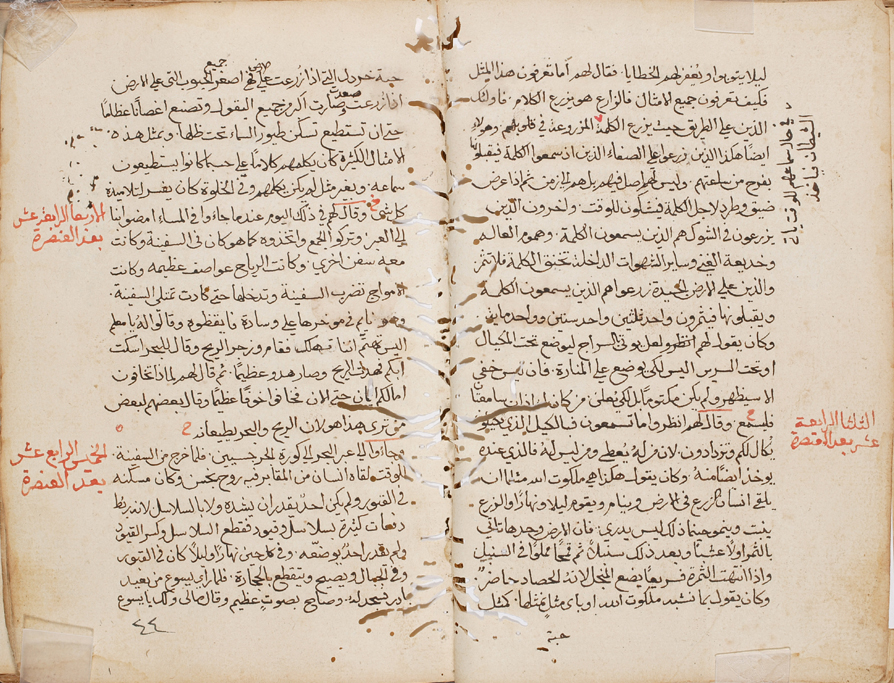 ليلا يتوبوا ويُغفر لهم الخطايا. فقال لهم أما تعرفون هذا المثل
فكيف تعرفون جميع الامثال فالزارع هو يزرع الكلام. فاوليك
الذين على الطريق حيث يزرع الكلمة المزروعة في قلوبهم وهولاء
ايضاً هكذا الذين زرعوا على الصفاء الذين اذ سمعوا الكلمة فيقبلونها
بفرح من ساعتهم. وليس لهم اصل فيهم بل هم الى زمن ثم اذا عرض
ضيق وطرد لاجل الكلمة فيشكون للوقت. واخرون الذين
يزرعون في الشوك هم الذين يسمعون الكلمة. وهموم العالم
وخديعة الغنى وساير الشهوات الداخلة تخنق الكلمة فلا تثمر
والذين على الارض الجيدة زرعوا هم الذين يسمعون الكلمة
ويقبلونها فيثمرون واحد ثلثين واحد ستين وواحد ماية
وكان يقول لهم انظروا لعل يوتى بالسراج ليوضع تحت المكيال
او تحت السرير اليس لكي يوضع على المنارة. فان ليس خفي
الا سيظهر ولم يكن مكتوما بل لكي يعلن من كان له اذنان سامعتان
فليسمع. وقال لهم انظروا ما تسمعون فبالكيل الذي
يكال لكم وتزدادون. لان من له يُعطى ومن ليس له فالذي عنده
يوخذ ايضاً منه. وكان يقول هكذا هي ملكوت الله مثل انسان
يلقي انسان الزرع في الارض وينام ويقوم ليلا ونهارًا والزرع
ينبت وينمو حينما ذلك ليس يدري. فان الارض وحدها تاتي
بالثمر اولاً عشبًا وبعد ذلك سنبلاً ثم قمحًا مملوًا في السنبل
واذا انتهت الثمرة فسريعًا يضع المنجل لانه الحصاد حاضرٌ
وكان يقول بما نشبه ملكوت الله او باي مثل نمثلها. كمثل
حبة
الثلثا الرابعة
عشر بعد العنصرة
حبة خردل التي اذا زرعت على الارض فهي اصغر الحبوب التي على الارض
جميع
اذا زرعت صعدت وصارت اكبر من جميع البقول وتصنع اغصاناً عظامًا
حتى ان تستطيع تسكن طيور السماء تحت ظلها. وبمثل هذه
الامثال الكثيرة كان يكلمهم كلامًا على حسب ما كانوا يستطيعون
سماعه. وبغير مثل لم يكن يكلمهم وفي الخلوة كان يفسر لتلاميذه
كل شي وقال لهم في ذلك اليوم عندما جاءوا في المساء امضوا بنا
الى العبر وتركوا الجمع واتخذوه كما هو كان في السفينة وكانت
معه سفن اخرى. وكانت الرياح عواصف عظيمه وكانت
الامواج تضرب السفينة وتدخلها حتى كادت تمتلي السفينة.
وهو نايم في موخرها على وسادة فايقظوه وقالوا له يا معلم
اليس تهتم اننا نهلك فقام وزجر الريح وقال للبحر اسكت
ابكم فهدات الريح وصار هدو عظيمًا. ثم قال لهم لماذا تخافون
اما لكم ايمان حتى الان فخافوا خوفًا عظيمًا وقال بعضهم لبعض
من ترى هذا هو لان الريح والبحر يطيعانه
وجاءوا الى عبر البحر الى كورة الجرجسيين. فلما خرج من السفينة
للوقت لقاه انسان من المقابر فيه روح نجس وكان مسكنه
في القبور ولم يكن احدٌ يقدر ان يشده ولا بالسلاسل لانه ربط
دفعات كثيرة بسلاسل وقيود فقطع السلاسل وكسر القيود
ولم يقدر احدٌ وكل حين نهارًا وليلاً كان في القبور
وفي الجبال ويصيح ويتقطع بالحجارة. فلما راى يسوع من بعيد
بادر فسجد له. وصاح بصوتٍ عظيم وقال مالي ولك يا يسوع
الاربعا الرابعة عشر
بعد العنصرة
الخميس الرابع عشر
بعد العنصرة
٤٤